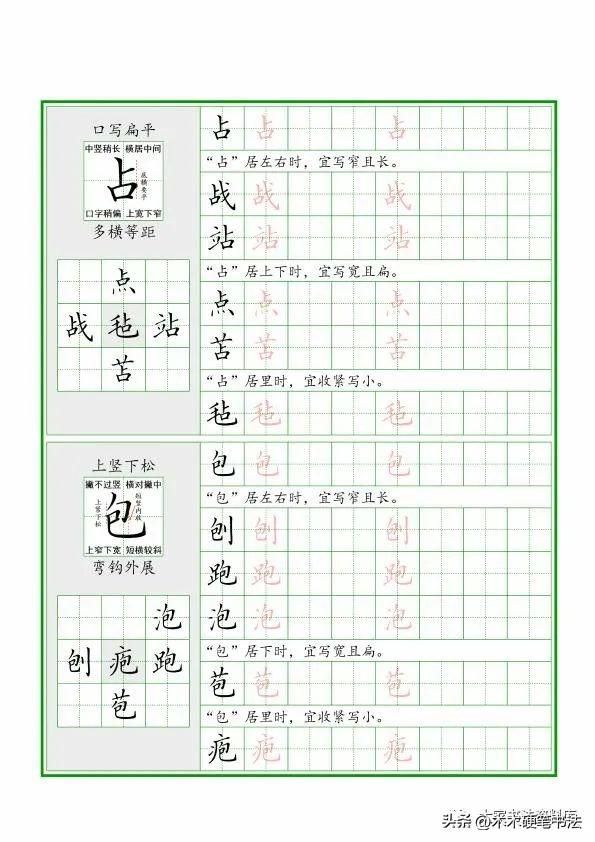 口写扁平
中竖稍长 横居中间
占
底横要平
口字稍偏 上宽下窄
多横等距
点
战 毡 站
苫
占 占 占
“占”居左右时，宜写窄且长。
战 战 战
站 站 站
“占”居上下时，宜写宽且扁。
点 点 点
苫 苫 苫
“占”居里时，宜收紧写小。
毡 毡 毡
上竖下松
撇不过竖 横对撇中
包
上窄下宽 短横较斜
弯钩外展
泡
刨 疱 跑
苞
包 包 包
“包”居左右时，宜写窄且长。
刨 刨 刨
跑 跑 跑
泡 泡 泡
“包”居下时，宜写宽且扁。
苞 苞 苞
“包”居里时，宜收紧写小。
疱 疱 疱
头条 @木木硬笔书法